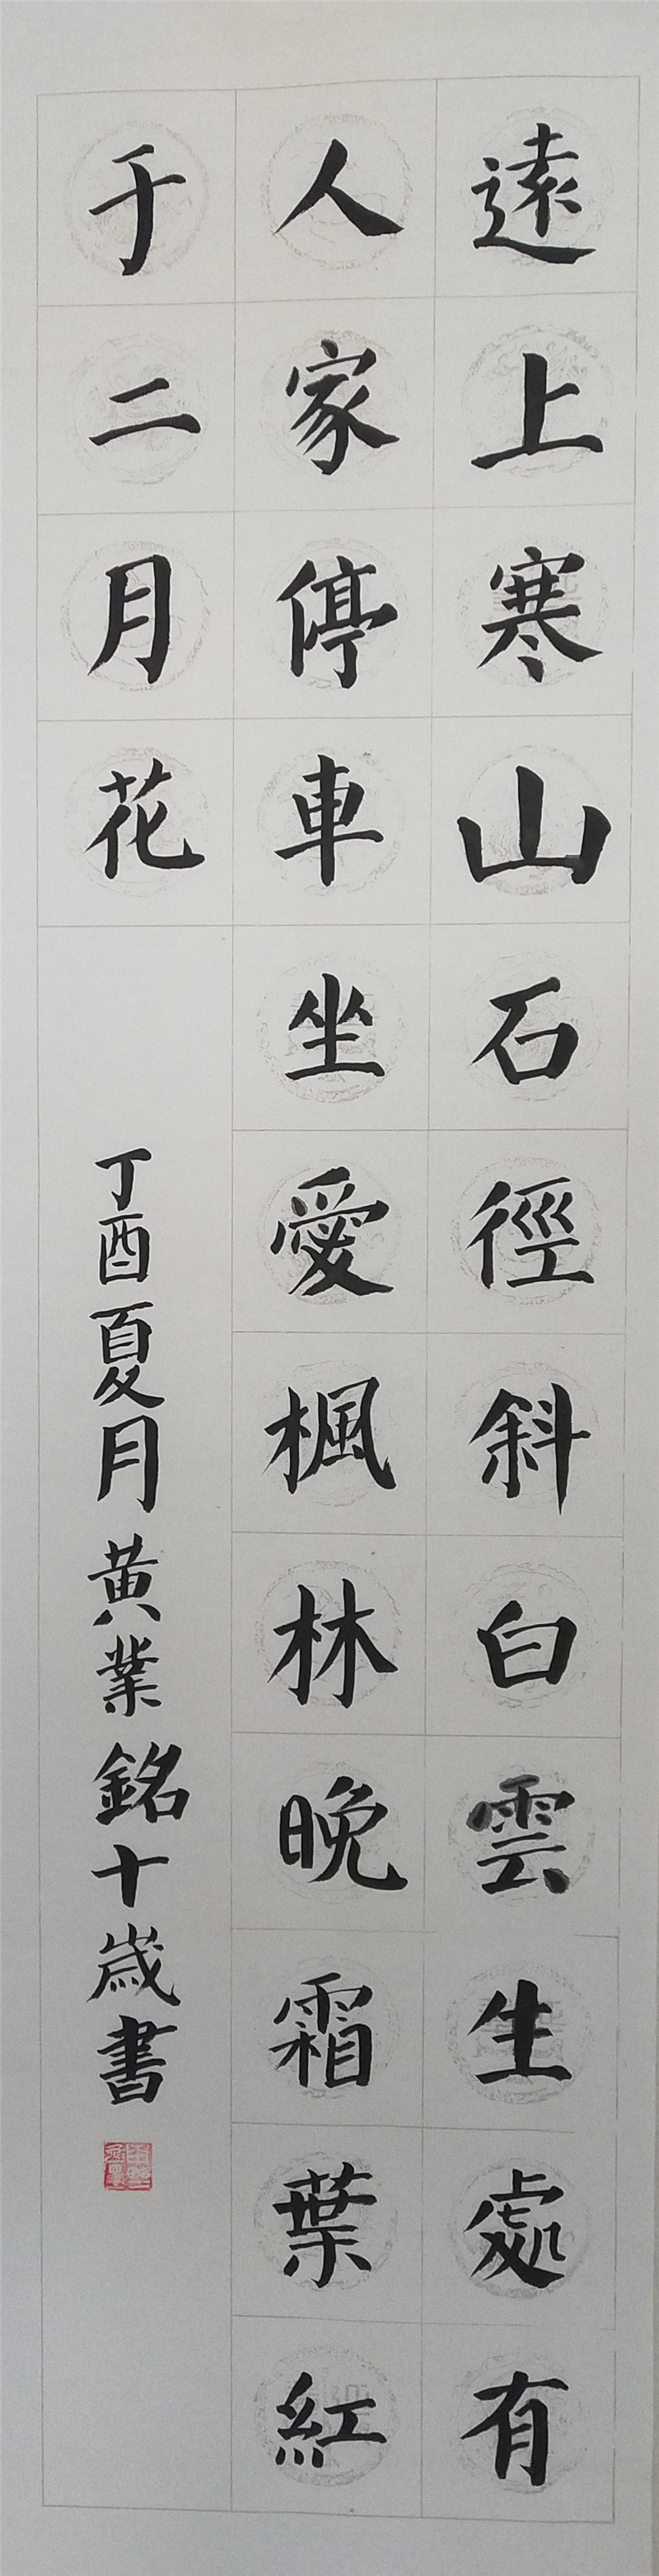 遠上寒山石徑斜白雲生處有
人家停車坐愛楓林晚霜葉紅
于二月花
丁酉夏月黄業銘十歲書